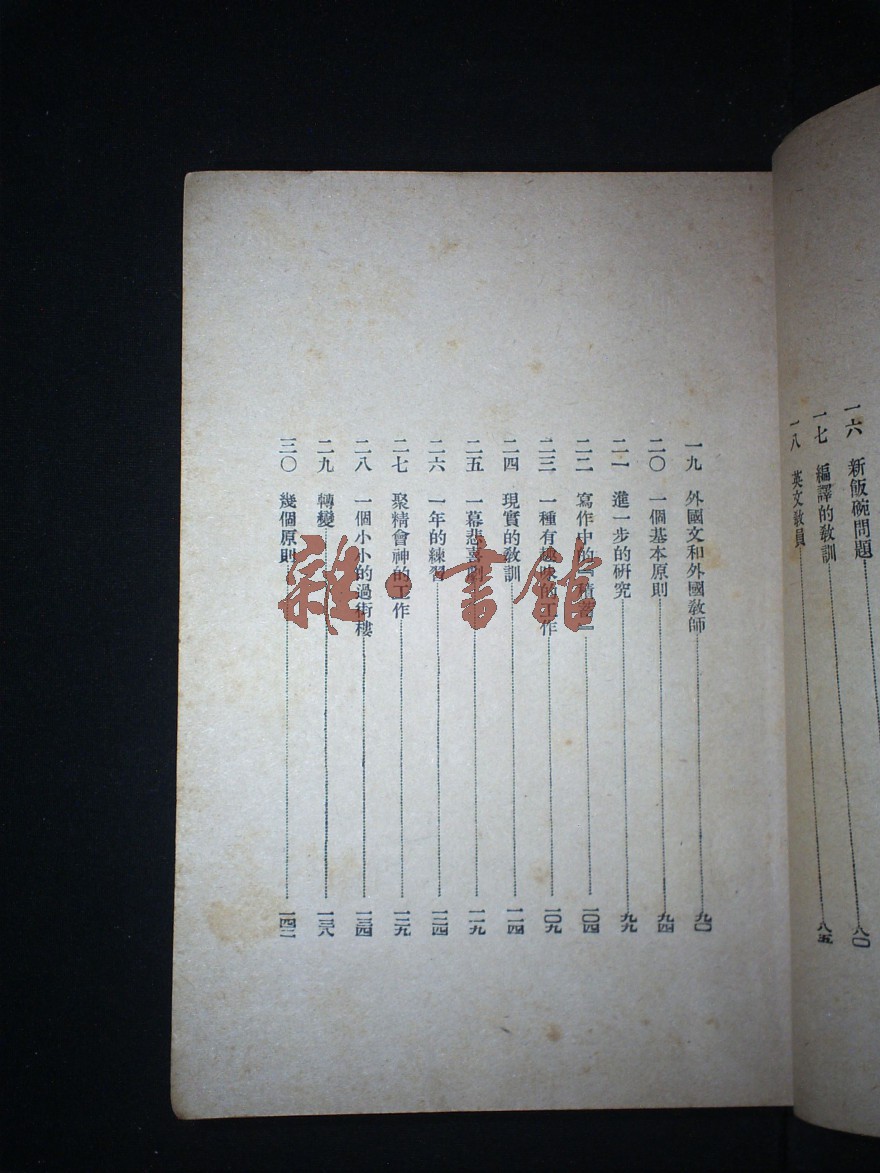 一六 新飯碗問題 八〇
一七 編譯的敎訓 八五
一八 英文敎員
一九 外國文和外國敎師 九〇
二〇 一個基本原則 九四
二一 進一步的研究 九九
二二 寫作中的『積蓄』 一〇四
二三 一種有趣味的工作 一〇九
二四 現實的敎訓 一一四
二五 一幕悲喜劇 一一九
二六 一年的練習 一二四
二七 聚精會神的工作 一二九
二八 一個小小的過街樓 一三四
二九 轉變 一三八
三〇 幾個原則 一四二
雜·書館